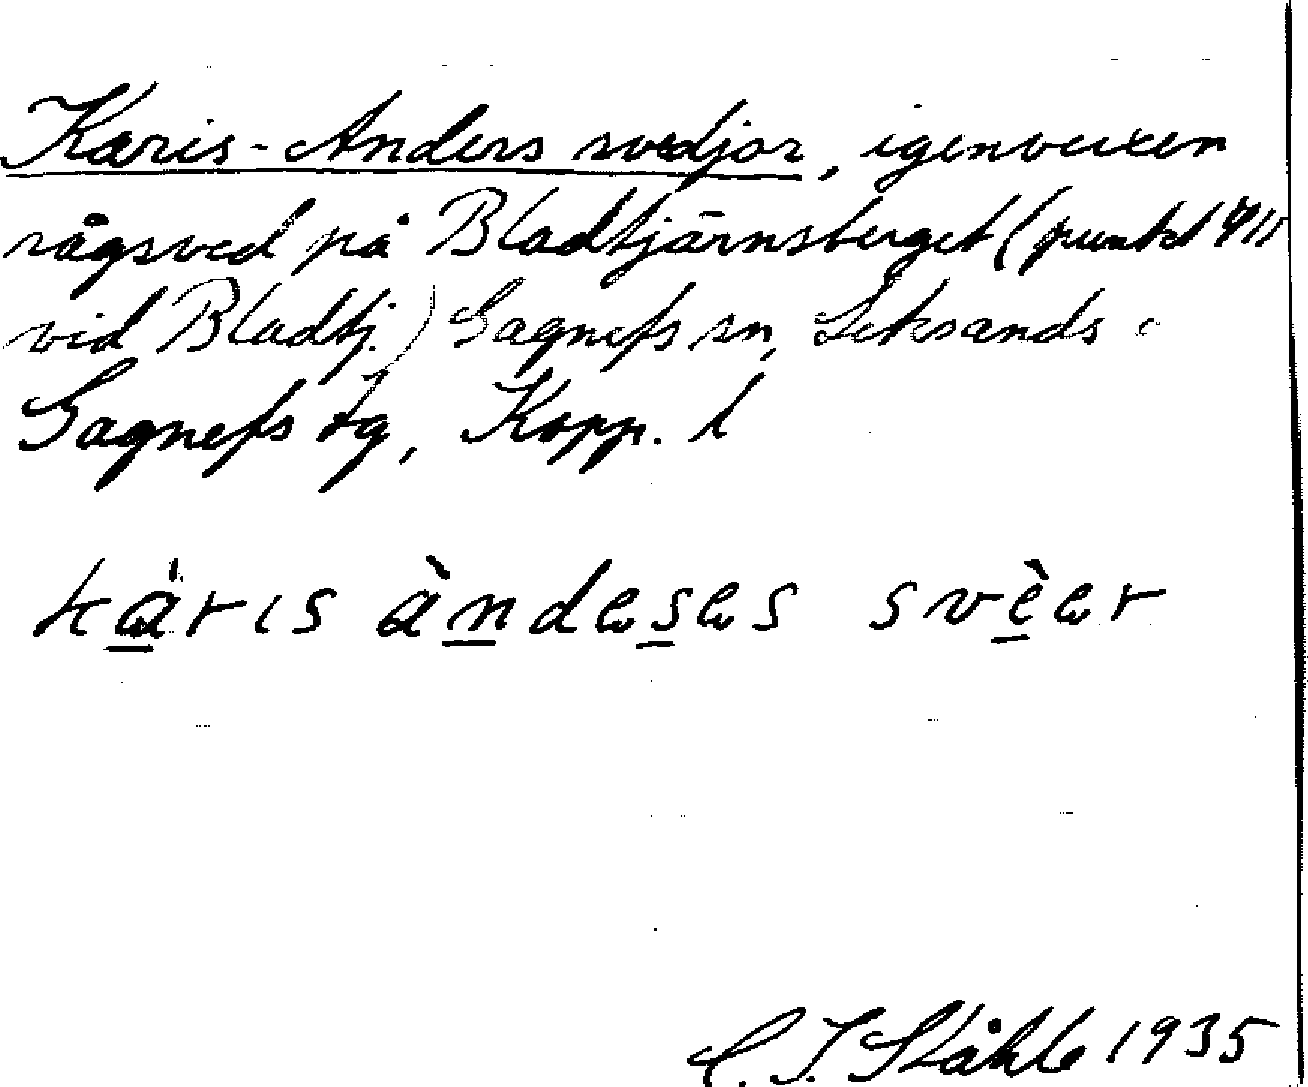 Karis-Anders svedjor, igenvuxen
rågsved på Bladtjärnsberget (punkt 411
vid Bladtj.) Gagnefs sn, Leksands o
Gagnefs tg, Kopp. l
käris àndəsəs svèər
C. I. Ståhle 1935